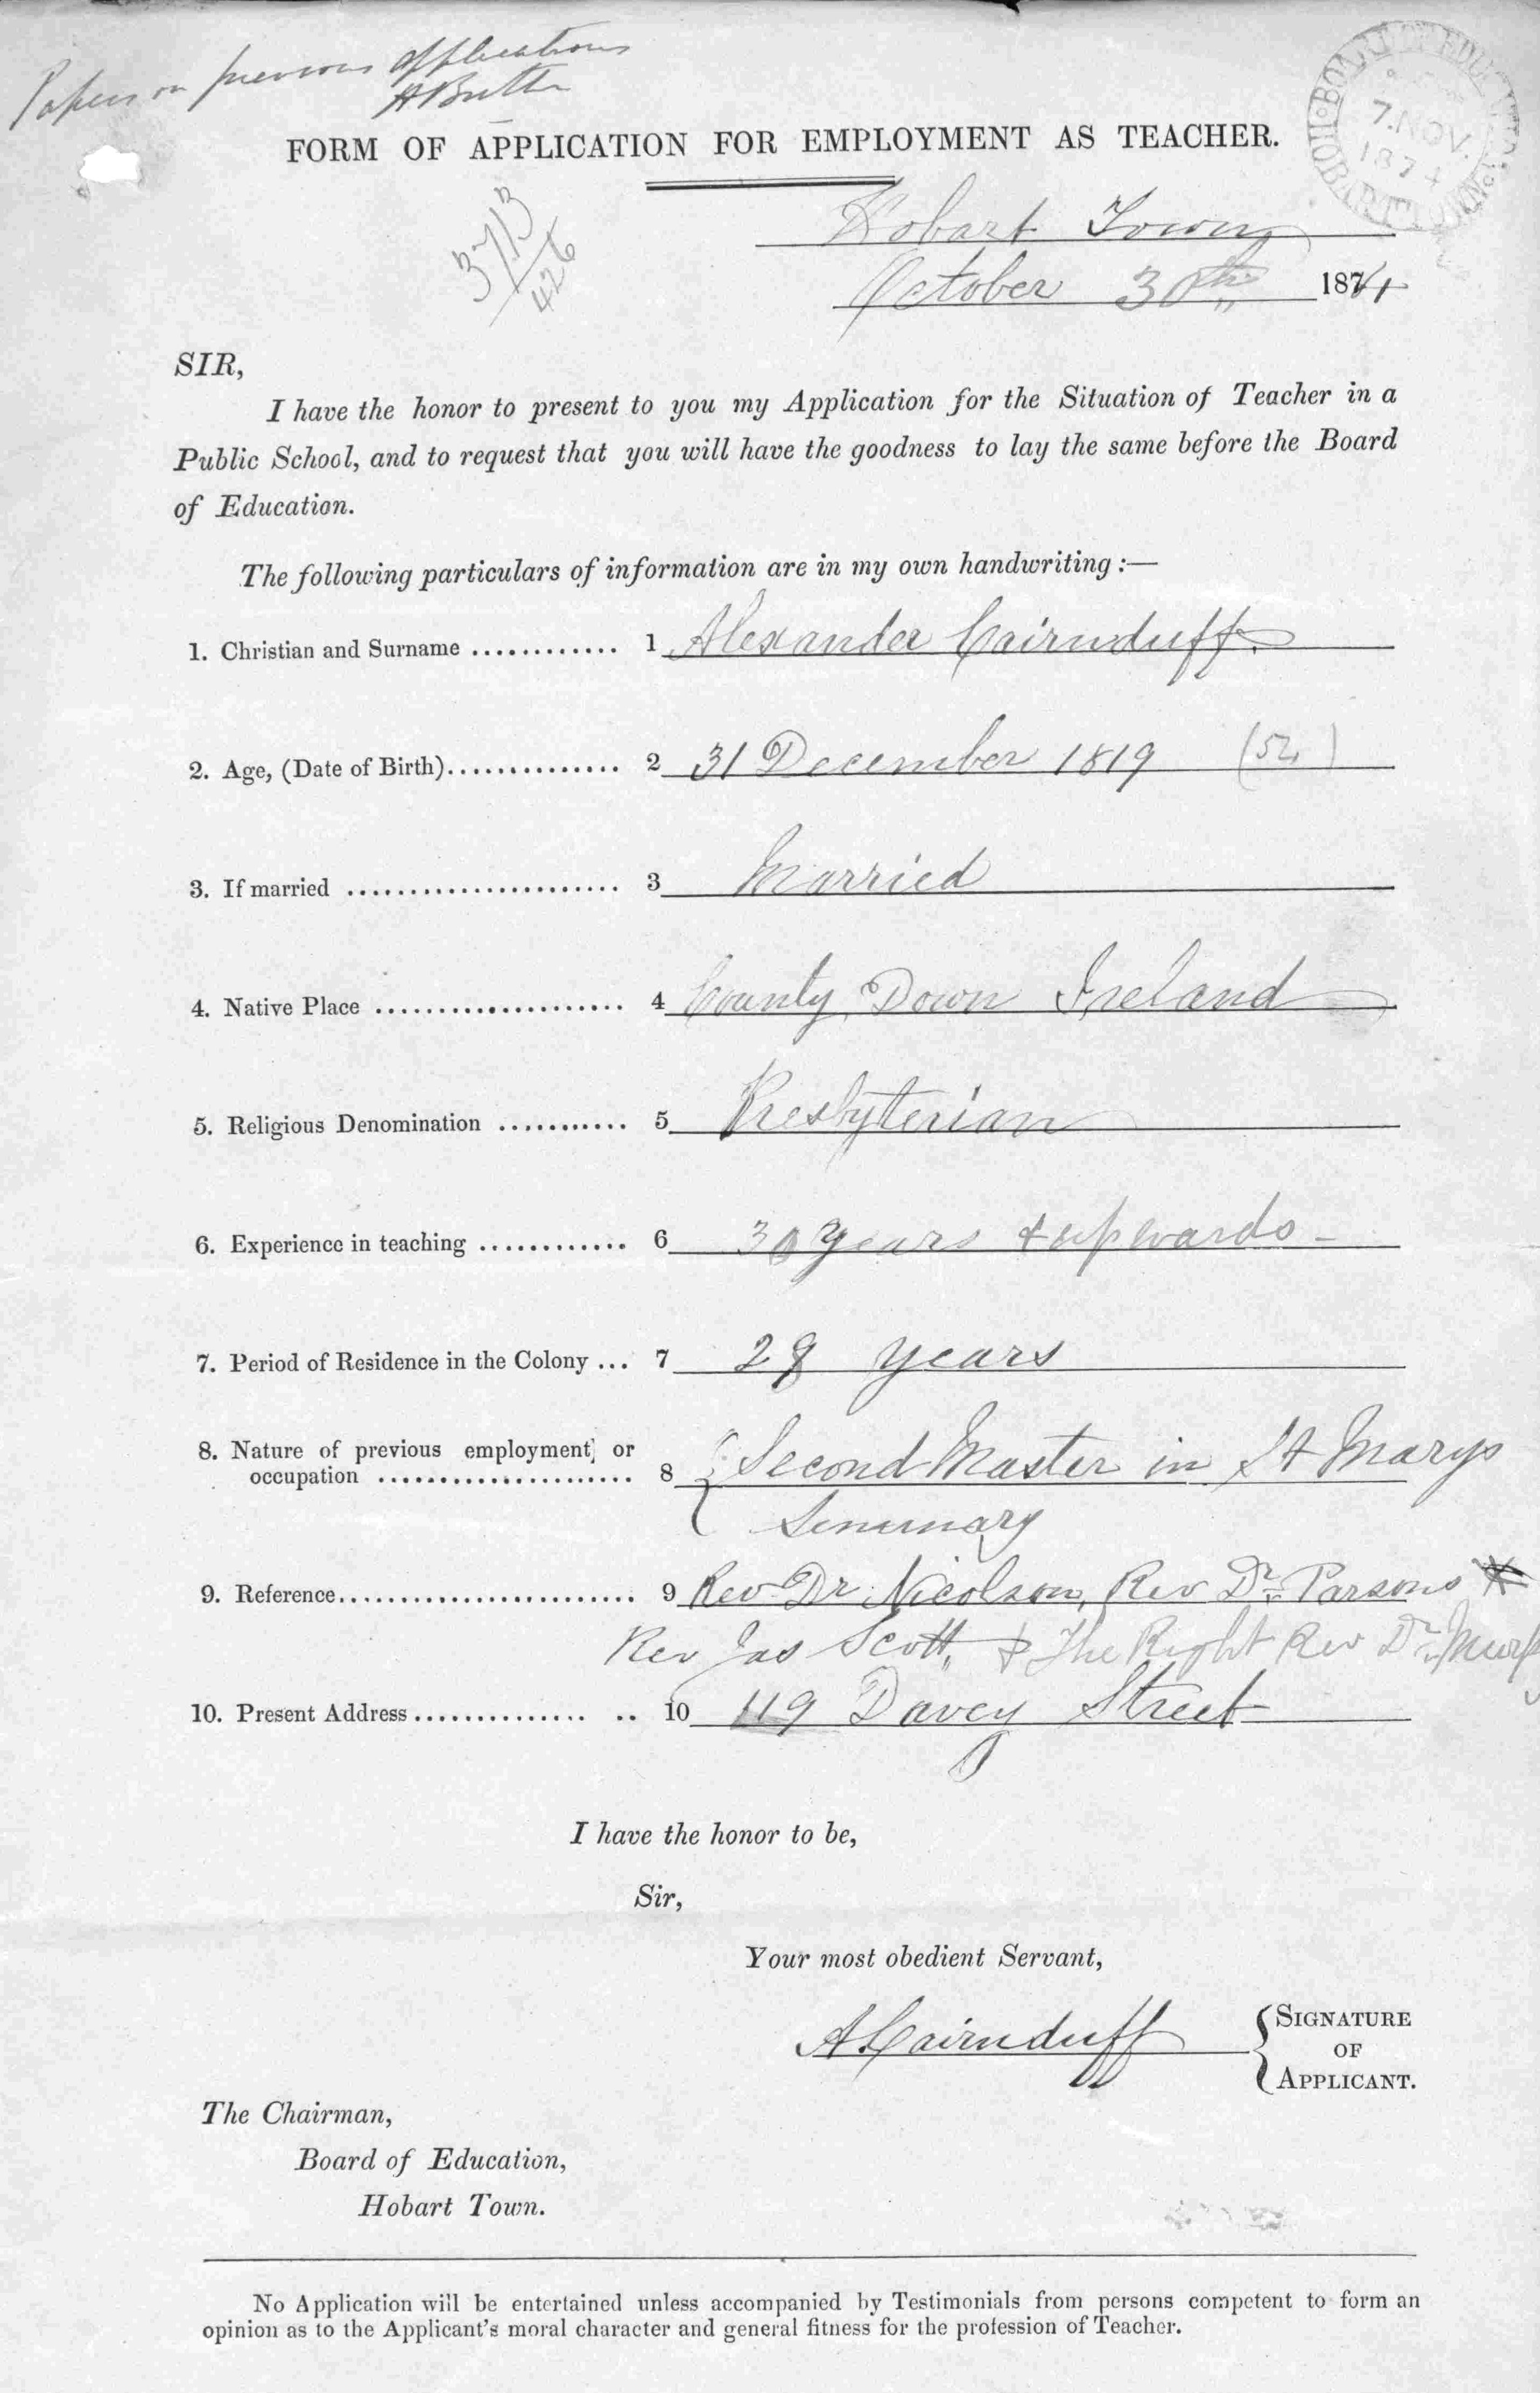 Papers on previous applications
FORM OF APPLICATION FOR EMPLOYMENT AS TEACHER.
BOARD OF EDUCATION
7. NOV.
1874
HOBART TOWN
3713
426
Hobart Town
October 30th 1874
SIR,
I have the honor to present to you my Application for the Situation of Teacher in a
Public School, and to request that you will have the goodness to lay the same before the Board
of Education.
The following particulars of information are in my own handwriting :—
1. Christian and Surname ............ 1 Alexander Cairnduff
2. Age, (Date of Birth).............. 2 31 December 1819 (54)
3. If married ...................... 3 Married
4. Native Place .................... 4 County Down Ireland
5. Religious Denomination ........... 5 Presbyterian
6. Experience in teaching ............ 6 30 years & upwards -
7. Period of Residence in the Colony ... 7 28 years
8. Nature of previous employment or
occupation .................... 8 Second Master in St Marys
Seminary
9. Reference........................ 9 Rev Dr. Nicolson, Rev Dr. Parsons
Rev Jas Scott, & The Right Rev Dr. Murp
10. Present Address.............. .. 10 119 Davey Street
I have the honor to be,
Sir,
Your most obedient Servant,
A Cairnduff
SIGNATURE
OF
APPLICANT.
The Chairman,
Board of Education,
Hobart Town.
No Application will be entertained unless accompanied by Testimonials from persons competent to form an
opinion as to the Applicant's moral character and general fitness for the profession of Teacher.